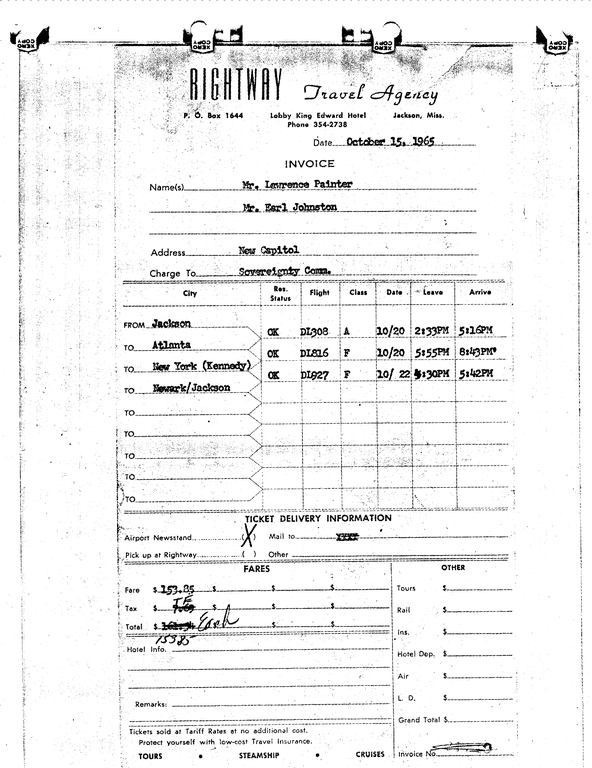 XERO COPY XERO COPY XERO COPY XERO COPY
RIGHTWAY Travel Agency
P. O. Box 1644 Lobby King Edward Hotel Jackson, Miss.
Phone 354-2738
Date October 15, 1965
INVOICE
Name(s) Mr. Lawrence Painter
Mr. Earl Johnston
Address New Capitol
Charge To Sovereignty Comm.
City Res. Status Flight Class Date Leave Arrive
FROM Jackson OK DL308 A 10/20 2:33PM 5:16PM
TO Atlanta OK DL816 F 10/20 5:55PM 8:43PM*
TO New York (Kennedy) OK DL927 F 10/ 22 :30PM 5:42PM
TO Newark/Jackson
TO
TO
TO
TO
TO
TICKET DELIVERY INFORMATION
Airport Newsstand (X) Mail to
Pick up at Rightway ( ) Other
FARES OTHER
Fare $ 153.85 $ $ $ Tours $
Tax $ T.E. $ $ $ Rail $
Total $ Each $ $ $ Ins. $
153 85
Hotel Info. Hotel Dep. $
Air $
Remarks: L. D. $
Grand Total $
Tickets sold at Tariff Rates at no additional cost.
Protect yourself with low-cost Travel Insurance.
TOURS • STEAMSHIP • CRUISES Invoice No.